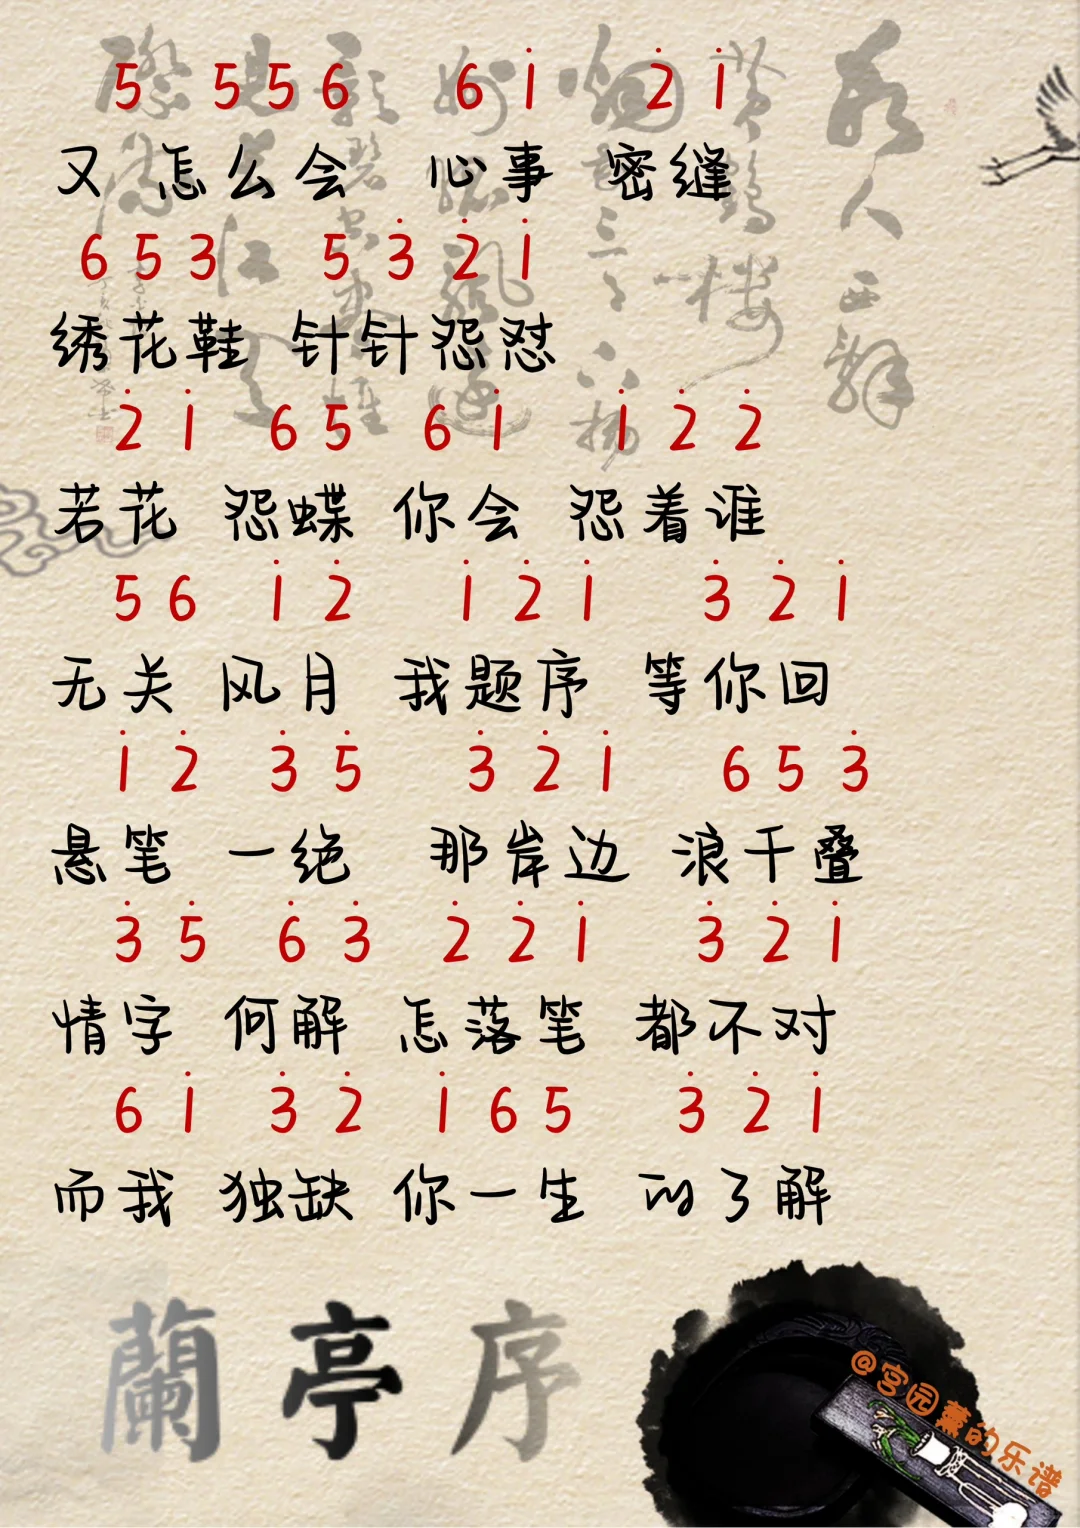 5 5 5 6 6 1̇ 2̇ 1̇
又 怎么会 心事 密缝
6 5 3 5 3̇ 2̇ 1̇
绣花鞋 针针怨怼
2̇ 1̇ 6 5 6 1̇ 1̇ 2̇ 2̇
若花 怨蝶 你会 怨着谁
5 6 1̇ 2̇ 1̇ 2̇ 1̇ 3̇ 2̇ 1̇
无关 风月 我题序 等你回
1̇ 2̇ 3̇ 5̇ 3̇ 2̇ 1̇ 6 5 3̇
悬笔 一绝 那岸边 浪千叠
3̇ 5̇ 6̇ 3̇ 2̇ 2̇ 1̇ 3̇ 2̇ 1̇
情字 何解 怎落笔 都不对
6 1̇ 3̇ 2̇ 1̇ 6 5 3̇ 2̇ 1̇
而我 独缺 你一生 的了解
蘭亭序
@宫园薰的乐谱